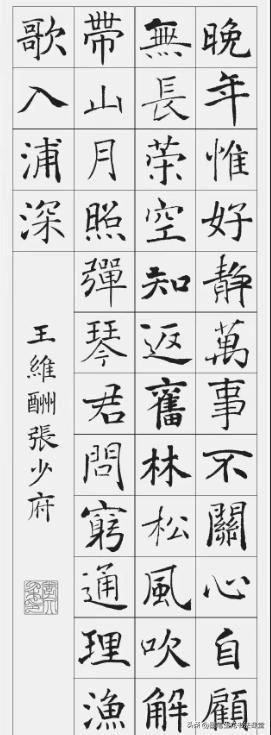 晚年惟好靜萬事不關心自顧
無長策空知返舊林松風吹解
帶山月照彈琴君問窮通理漁
歌入浦深
王維酬張少府